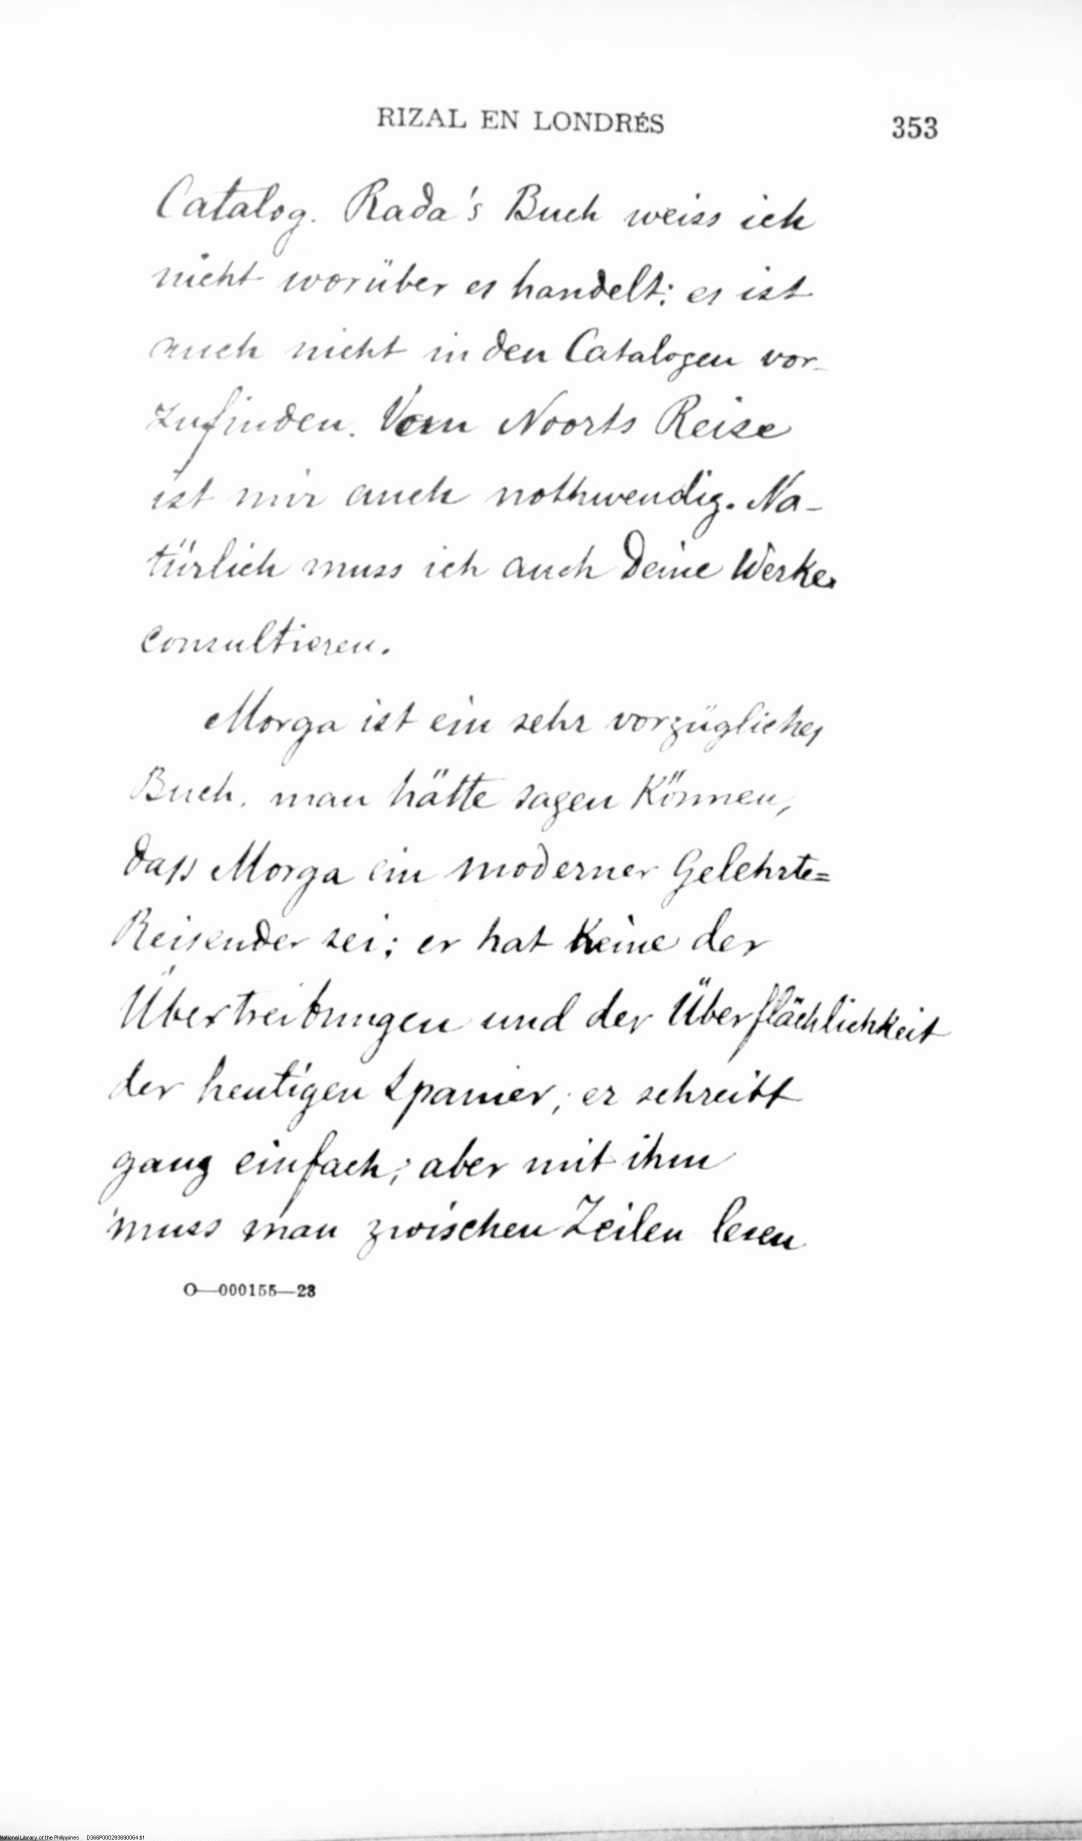 RIZAL EN LONDRÉS 353
Catalog. Rada's Buch weiss ich
nicht worüber es handelt; es ist
auch nicht in den Catalogen vor-
zufinden. Noorts Reise
ist mir auch nothwendig. Na-
türlich muss ich auch Deine Werke
consultieren.
Morga ist ein sehr vorzügliches
Buch. man hätte sagen Können,
daß Morga ein moderner Gelehrte=
Reisender sei; er hat Keine der
Übertreibungen und der Überflächlichkeit
der heutigen Spanier; er schreibt
ganz einfach; aber mit ihm
muss man zwischen Zeilen lesen
O—000155—23
National Library of the Philippines